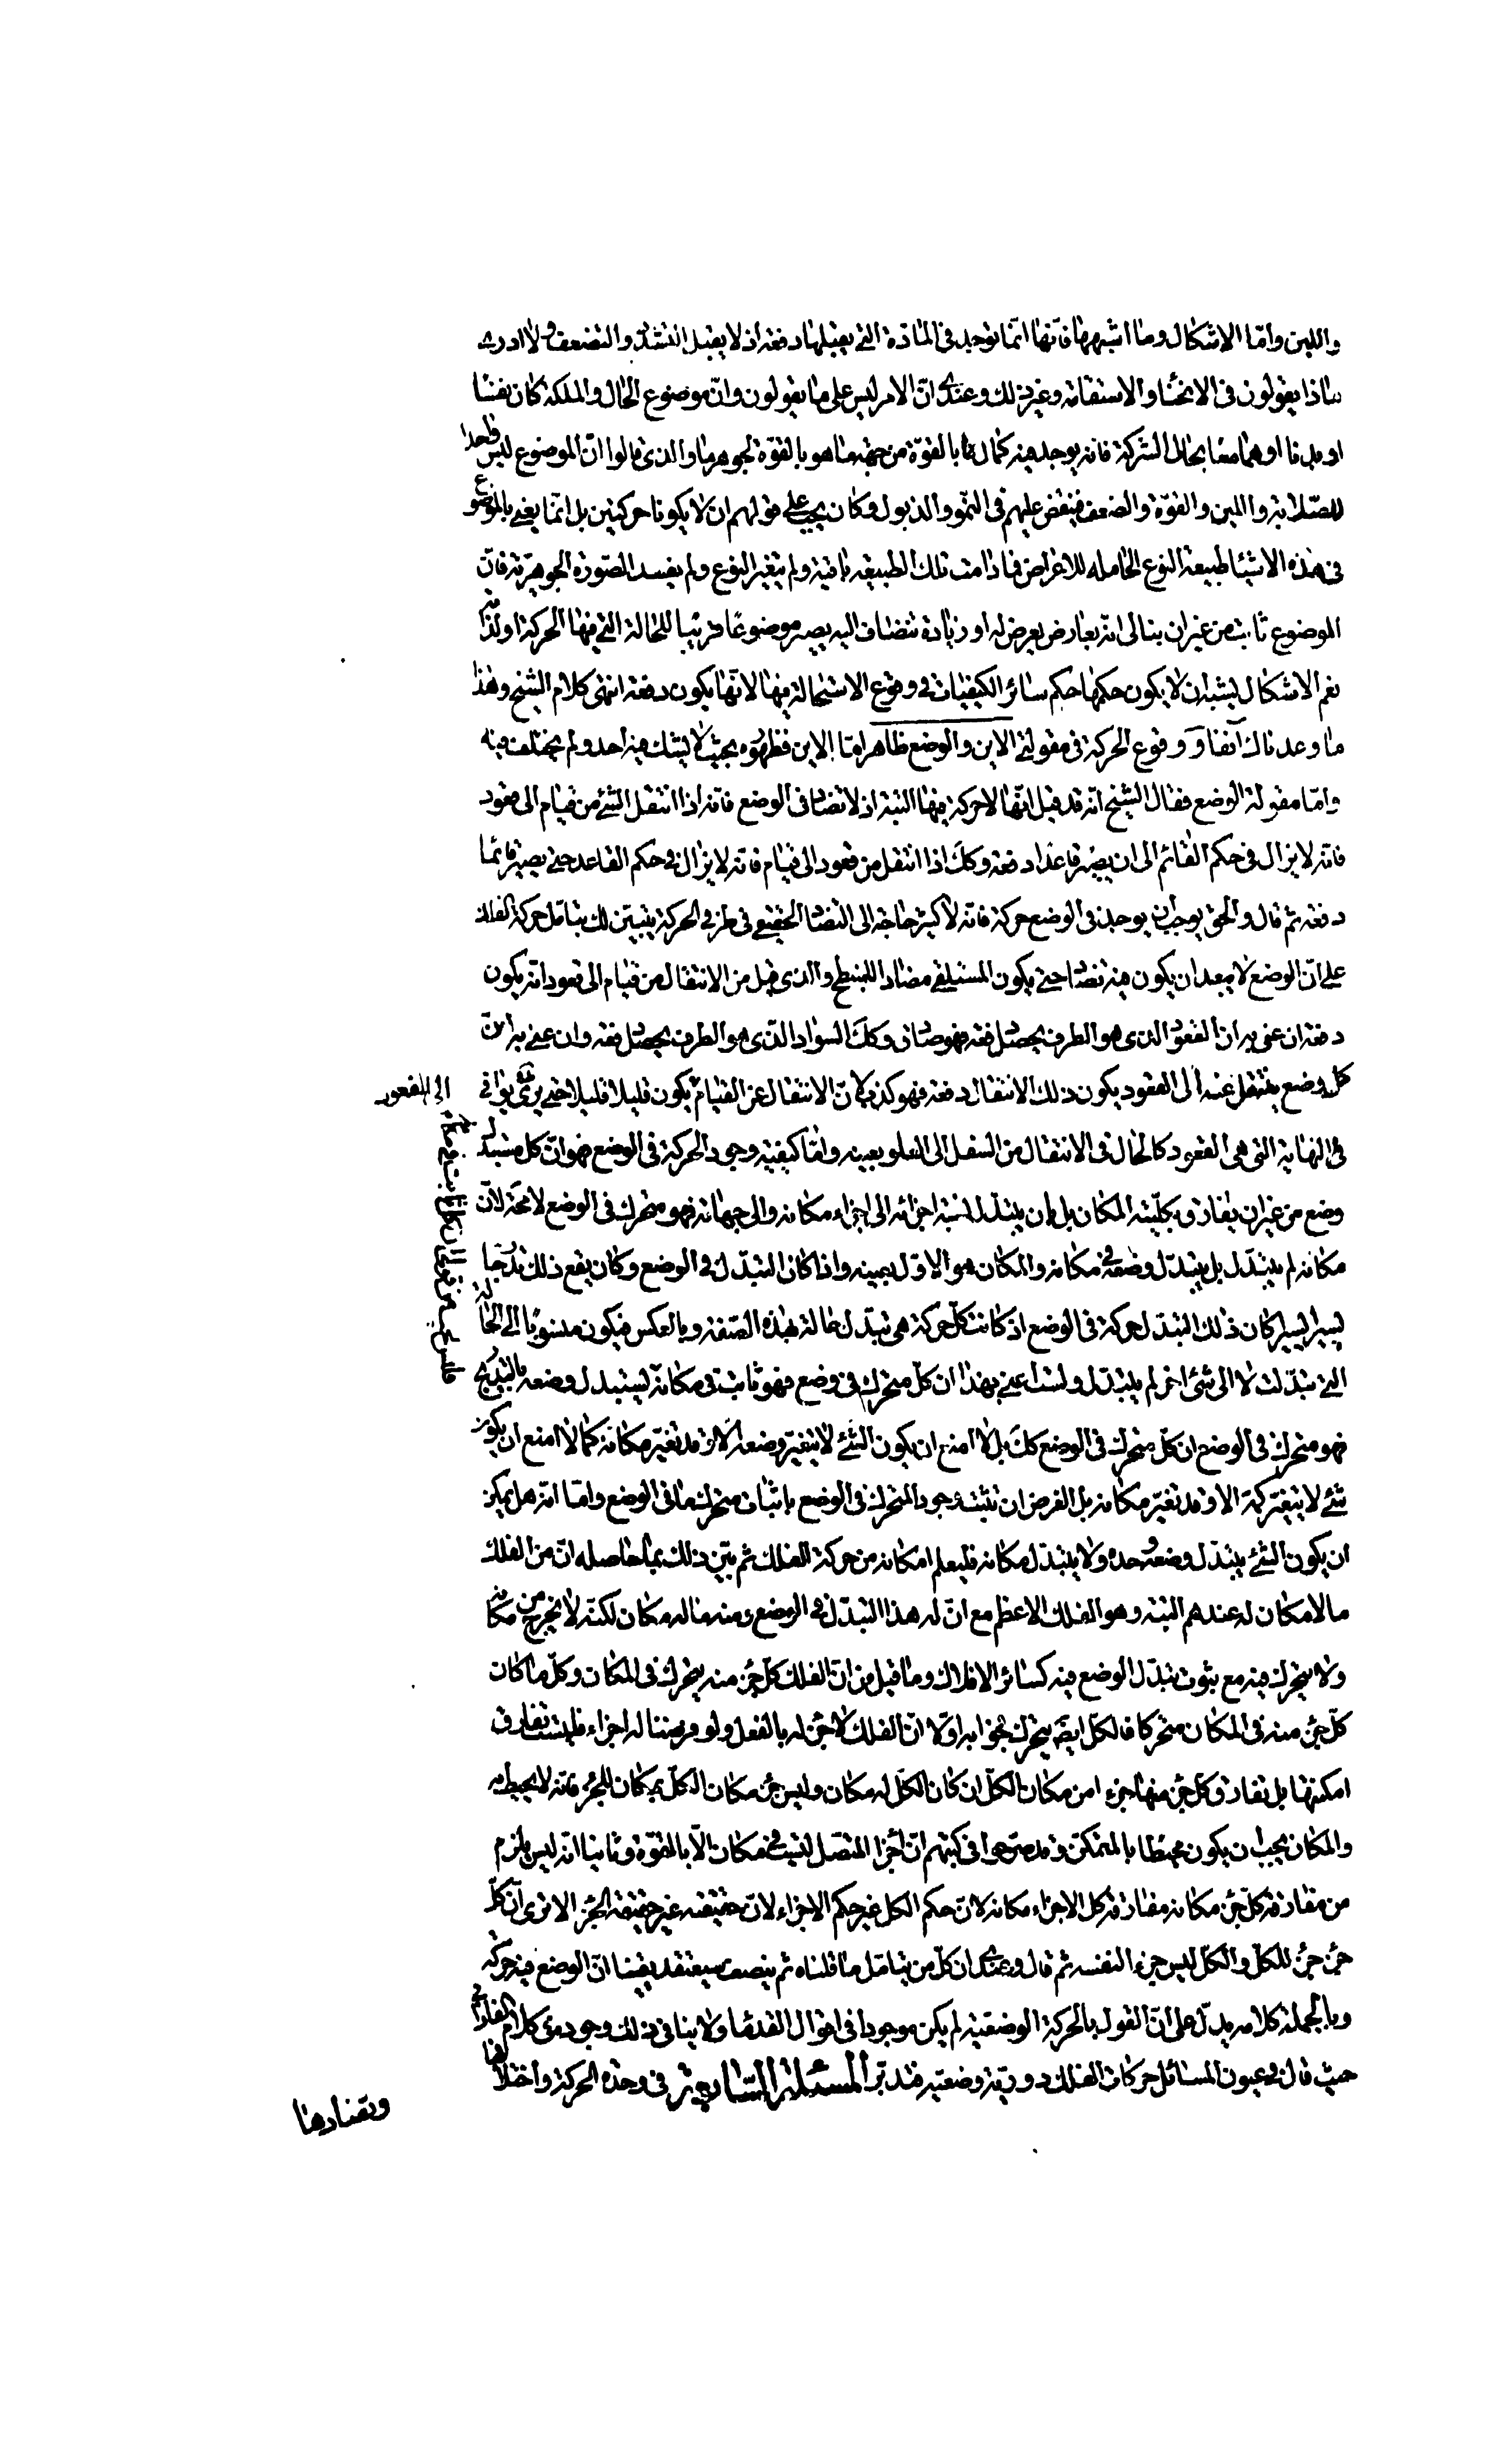 واللين وامّا الاشكال وما اشبهها فانّها انّما توجد فى المادّة التى يقبلها دفعة اذ لا يقبل التشدّد والتضعف ولا ادرى
ماذا يقولون فى الانحناء والاستقامة وغير ذلك وعندى انّ الامر ليس على ما يقولون وانّ موضوع الحال والملكة كان نفسًا
او بدنا او هما معًا بحال الشركة فانه يوجد فيه كمال ما بالقوّة من جهة ما هو بالقوّة لجوهر ما والذى قالوا انّ الموضوع ليس واحدا
للصّلابة واللين والقوّة والضعف فينقض عليهم فى النموّ والذبول وكان يجب على قولهم ان لا يكونا حركتين بل انّما يعنى بالموضوع
فى هذه الاشياء طبيعة النوع الحاملة للاعراض فما دامت تلك الطبيعة باقية ولم يتغير النوع ولم يفسد الصّورة الجوهريّة فانّ
الموضوع ثابت من غير ان يبالى انّه بعارض يعرض له او زيادة تنضاف اليه يصير موضوعًا قريبًا للحالة التى فيها الحركة او لذاته
نعم الاشكال يشبه ان لا يكون حكمها حكم سائر الكيفيات فى وقوع الاستحالة فيها لانّها يكون دفعة انتهى كلام الشيخ وهذا
ما وعدناك آنفا و وقوع الحركة فى مقولتى الاين والوضع ظاهر امّا الاين فظهوره بحيث لا يشك فيه احد ولم يختلف فيه
وامّا مقولة الوضع فقال الشيخ انّه قد قيل انّها لا حركة فيها البتة اذ لا تضاد فى الوضع فانه اذا انتقل الشئ من قيام الى قعود
فانّه لا يزال فى حكم القائم الى ان يصير قاعدا دفعة وكك اذا انتقل من قعود الى قيام فانّه لا يزال فى حكم القاعد حتى يصير قائما
دفعة ثم قال والحق يوجب ان يوجد فى الوضع حركة فانّه لا كبير حاجة الى التضاد الحقيقى فى طرفى الحركة يتبيّن لك بتامّل حركة الفلك
على انّ الوضع لا يبعد ان يكون فيه تضاد حتى يكون المستلقى مضادا للمنبطح والذى قيل من الانتقال من قيام الى قعود انّه يكون
دفعة ان عنى به ان القعود الذى هو الطرف يحصل دفعة فهو صادق وكك السواد الذى هو الطرف يحصل دفعة وان عنى به انّ
كل وضع ينتقل عنه الى القعود يكون ذلك الانتقال دفعة فهو كذب لانّ الانتقال عن القيام يكون قليلا قليلا حتى يوافى
الى القعود
فى النهاية التى هى القعود كالحال فى الانتقال من السفل الى العلو بعينه وامّا كيفية وجود الحركة فى الوضع فهو انّ كل مستبدل
وضع من غير ان يفارق بكلّيته المكان بل بان يتبدّل نسبة اجزائه الى اجزاء مكانه والى جهاته فهو متحرك فى الوضع لا محة لانّ
مكانه لم يتبدّل بل يتبدّل وضعه فى مكانه والمكان هو الاوّل بعينه واذا كان التبدّل فى الوضع وكان يقع ذلك تدرّجا
يسيرا يسيرا كان ذلك التبدل حركة فى الوضع اذ كانت كلّ حركة هى تبدّل حالة بهذه الصّفة وبالعكس فيكون منسوبًا الى الحالة
التى تبدّلت لا الى شئ اخر لم يتبدّل ولست اعنى بهذا ان كلّ متحرك فى وضع فهو ثابت فى مكانه
فهو متحرك فى الوضع ان كلّ متحرك فى الوضع كك بل لا امنع ان يكون الشئ لا يتغيّر وضعه الا وقد تغيّر مكانه كما لا امنع ان يكون
شئ لا يتغيّر كمّه الا وقد تغيّر مكانه بل الغرض ان نثبت وجود المتحرك فى الوضع باثبات متحرك ما فى الوضع وامّا انّه هل يمكن
ان يكون الشئ يتبدّل وضعه وحده ولا يتبدّل مكانه فليعلم امكانه من حركة الفلك ثم بيّن ذلك بما حاصله انّ من الفلك
ما لا مكان له عندهم البتة وهو الفلك الاعظم مع انّ له هذا التبدّل فى الوضع ومنه ما له مكان لكنّه لا يخرج من مكانه
ولا يتحرك فيه مع ثبوت تبدّل الوضع فيه كسائر الافلاك وما قيل من انّ الفلك كلّ جزء منه يتحرك فى المكان وكلّ ما كان
كلّ جزء منه فى المكان متحركا فالكلّ ايضًا يتحرك فجوابه اوّلا انّ الفلك لا جزء له بالفعل ولو فرضنا له اجزاء فليست تفارق
امكنتها بل تفارق كلّ جزء منها جزءا من مكان الكلّ ان كان الكلّ له مكان وليس جزء مكان الكلّ بمكان للجزء فانّه لا يحيط به
والمكان يجب ان يكون محيطا بالمتمكن وقد صرّحوا فى كتبهم انّ اجزاء المتصل ليست فى مكان الّا بالقوّة وثانيا انّه ليس يلزم
من مفارقة كلّ جزء مكانه مفارقة كل الاجزاء مكانه لانّ حكم الكل غير حكم الاجزاء لانّ حقيقته غير حقيقة الجزء الا ترى انّ كلّ
جزء جزء للكلّ والكلّ ليس جزءا لنفسه ثم قال وعندى ان كلّ من يتامّل ما قلناه ثم ينصف سيعتقد يقينا انّ الوضع فيه حركة
وبالجملة كلامه يدلّ على انّ القول بالحركة الوضعيّة لم يكن موجودا فى اقوال القدماء ولا ينافى ذلك وجوده فى كلام الفارابى
حيث قال فى عيون المسائل حركات الفلك دوريّة وضعيّة فتدبّر المسئلة السّابعة فى وحدة الحركة واختلافها
وتضادها